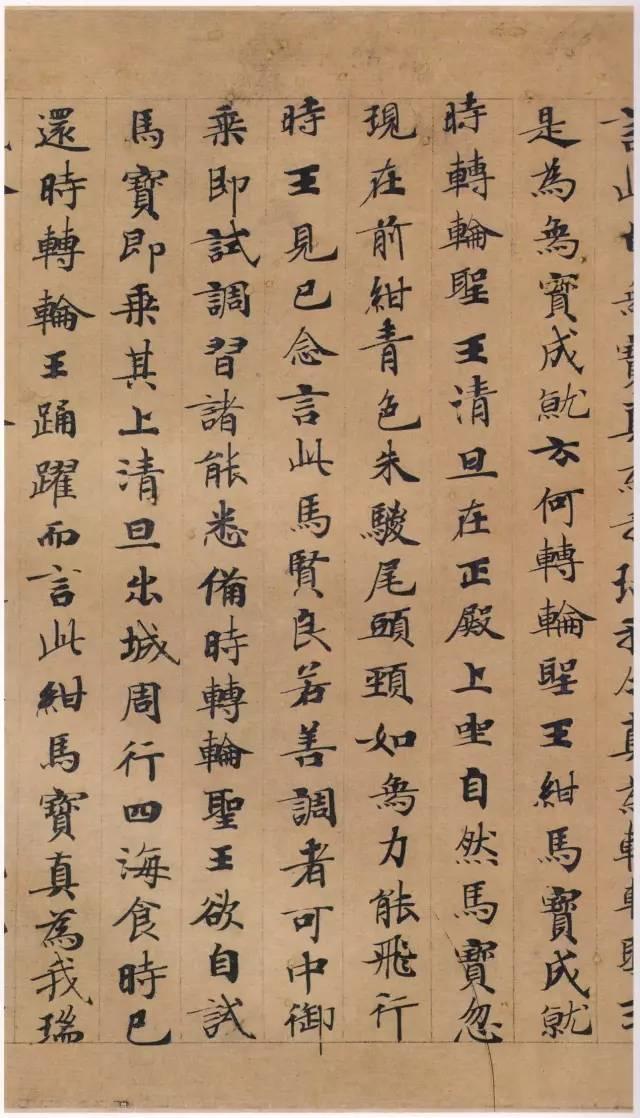 言此象寶真為瑞我今真為轉輪聖王
是為象寶成就云何轉輪聖王紺馬寶成就
時轉輪聖王清旦在正殿上坐自然馬寶忽
現在前紺青色朱騣尾頭頸如象力能飛行
時王見已念言此馬賢良若善調者可中御
乘即試調習諸能悉備時轉輪聖王欲自試
馬寶即乘其上清旦出城周行四海食時已
還時轉輪王踊躍而言此紺馬寶真為我瑞